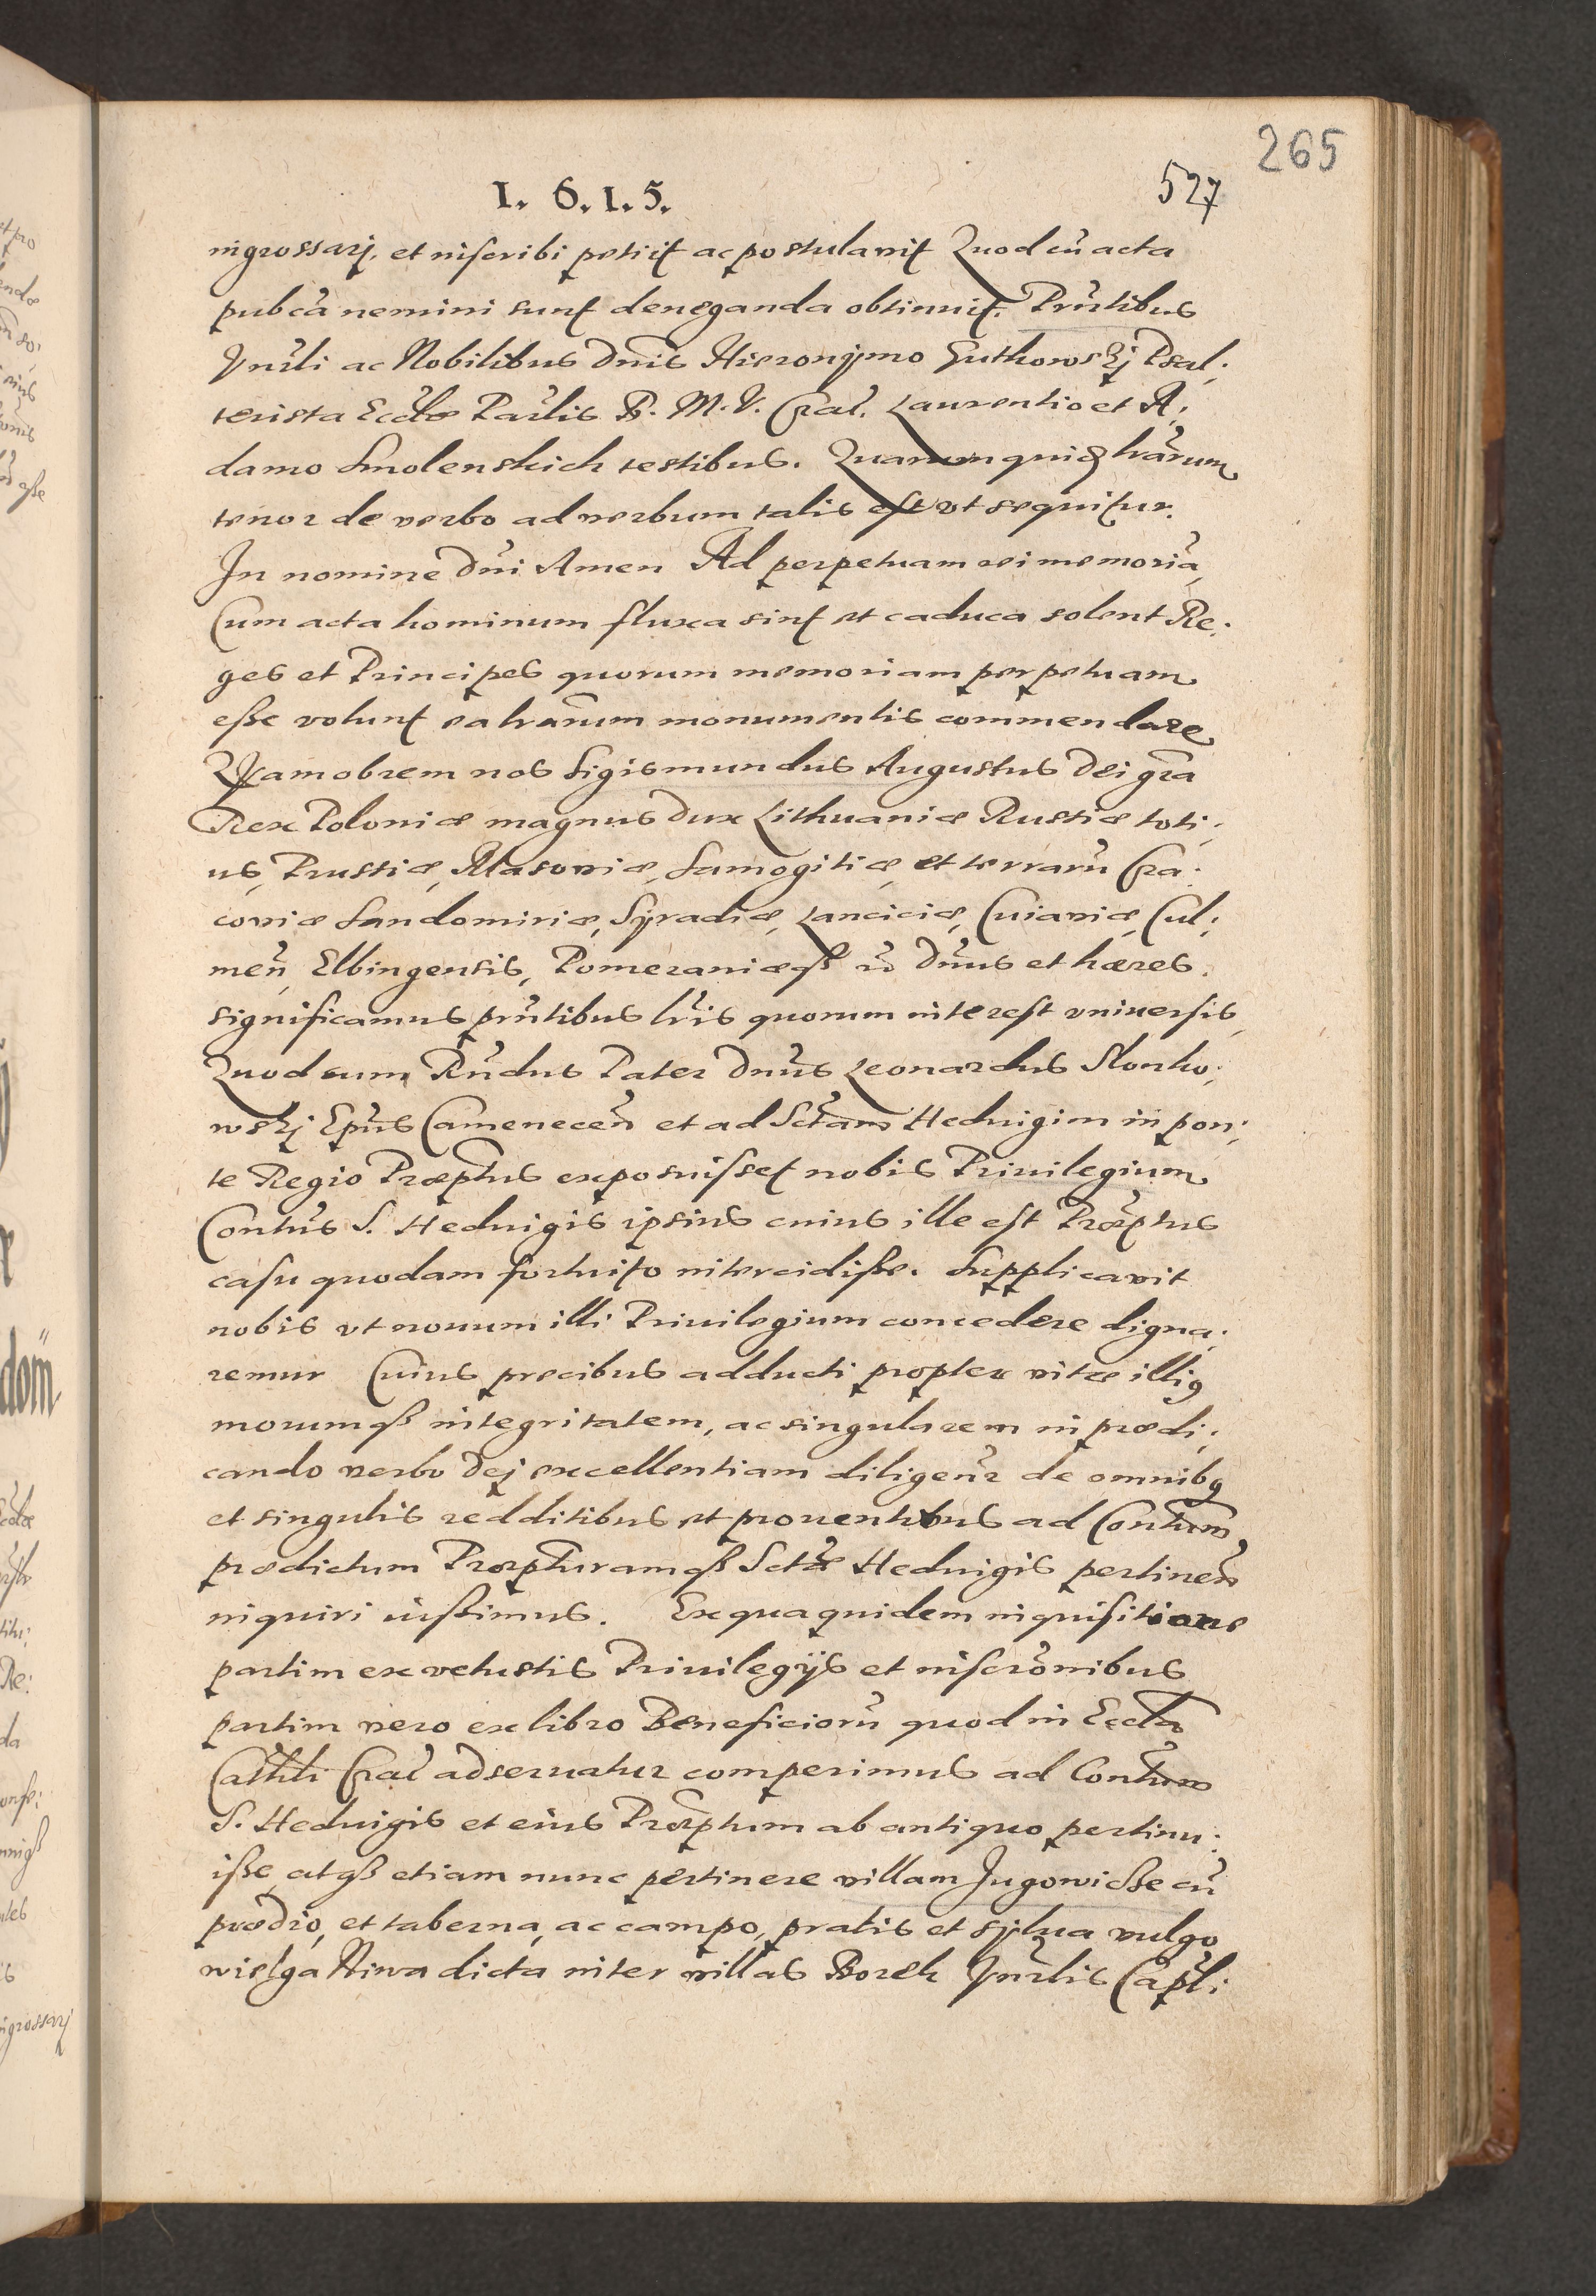 265
527
1. 6. 1. 5.
ingrossarj, et inscribi petijt ac postulavit Quod cũ acta
pubcã nemini sunt deneganda obtinuit. Prñtibus
Vnrli ac Nobilibus Dnis Hieronymo Gutkowskj Psal:
terista Ecclæ Parlis B. M. V. Crac. Laurentio et A:
damo Smolenskich testibus. Quarum quidẽ lrarum
tenor de verbo ad verbum talis est vt sequitur.
In nomine Dñi Amen Ad perpetuam rei memoriã,
Cum acta hominum fluxa sint et caduca solent Re:
ges et Principes quorum memoriam perpetuam
esse volunt ea lrarum monumentis commendare
Quamobrem nos Sigismundus Augustus Dei gra
Rex Poloniæ magnus Dux Lithuaniæ Russiæ toti:
us, Prussiæ, Masoviæ, Samogitiæ, et terrarũ Cra:
coviæ Sandomiriæ, Syradiæ, Lanciciæ, Cuiaviæ, Cul:
meñ, Elbingensis, Pomeraniæqß Dñus et hæres.
significamus prñtibus lris quorum interest vniuersis,
Quod cum Rñdus Pater Dñus Leonardus Slonko:
wskj Epus Cameneceñ et ad Sctam Heduigim in pon:
te Regio Præptus exposuisset nobis Priuilegium
Contus S. Heduigis ipsius cuius ille est Præptus
casu quodam fortuito intercidisse. Supplicavit
nobis vt nouum illi Priuilegium concedere digna:
remur Cuius precibus adducti propter vitæ illiꝯ
morumqß integritatem, ac singularem in prædi:
cando verbo Dej excellentiam diligenr de omnibꝯ
et singulis redditibus et prouentibus ad Contum
prædictum Præpturamqß Sctæ Heduigis pertineñ
inquiri iussimus. Ex qua quidem inquisitione
partim ex vetustis Priuilegijs et inscronibus
partim vero ex libro Beneficiorũ quod in Eccla
Cathli Crac adseruatur comperimus ad Contum
S. Heduigis et eius Præptum ab antiquo pertinu:
isse, atqß etiam nunc pertinere villam Jugowicße cũ
prædio, et taberna, ac campo, pratis et sylua vulgo
wielga Niwa dicta inter villas Borek Vnrlis Capli: